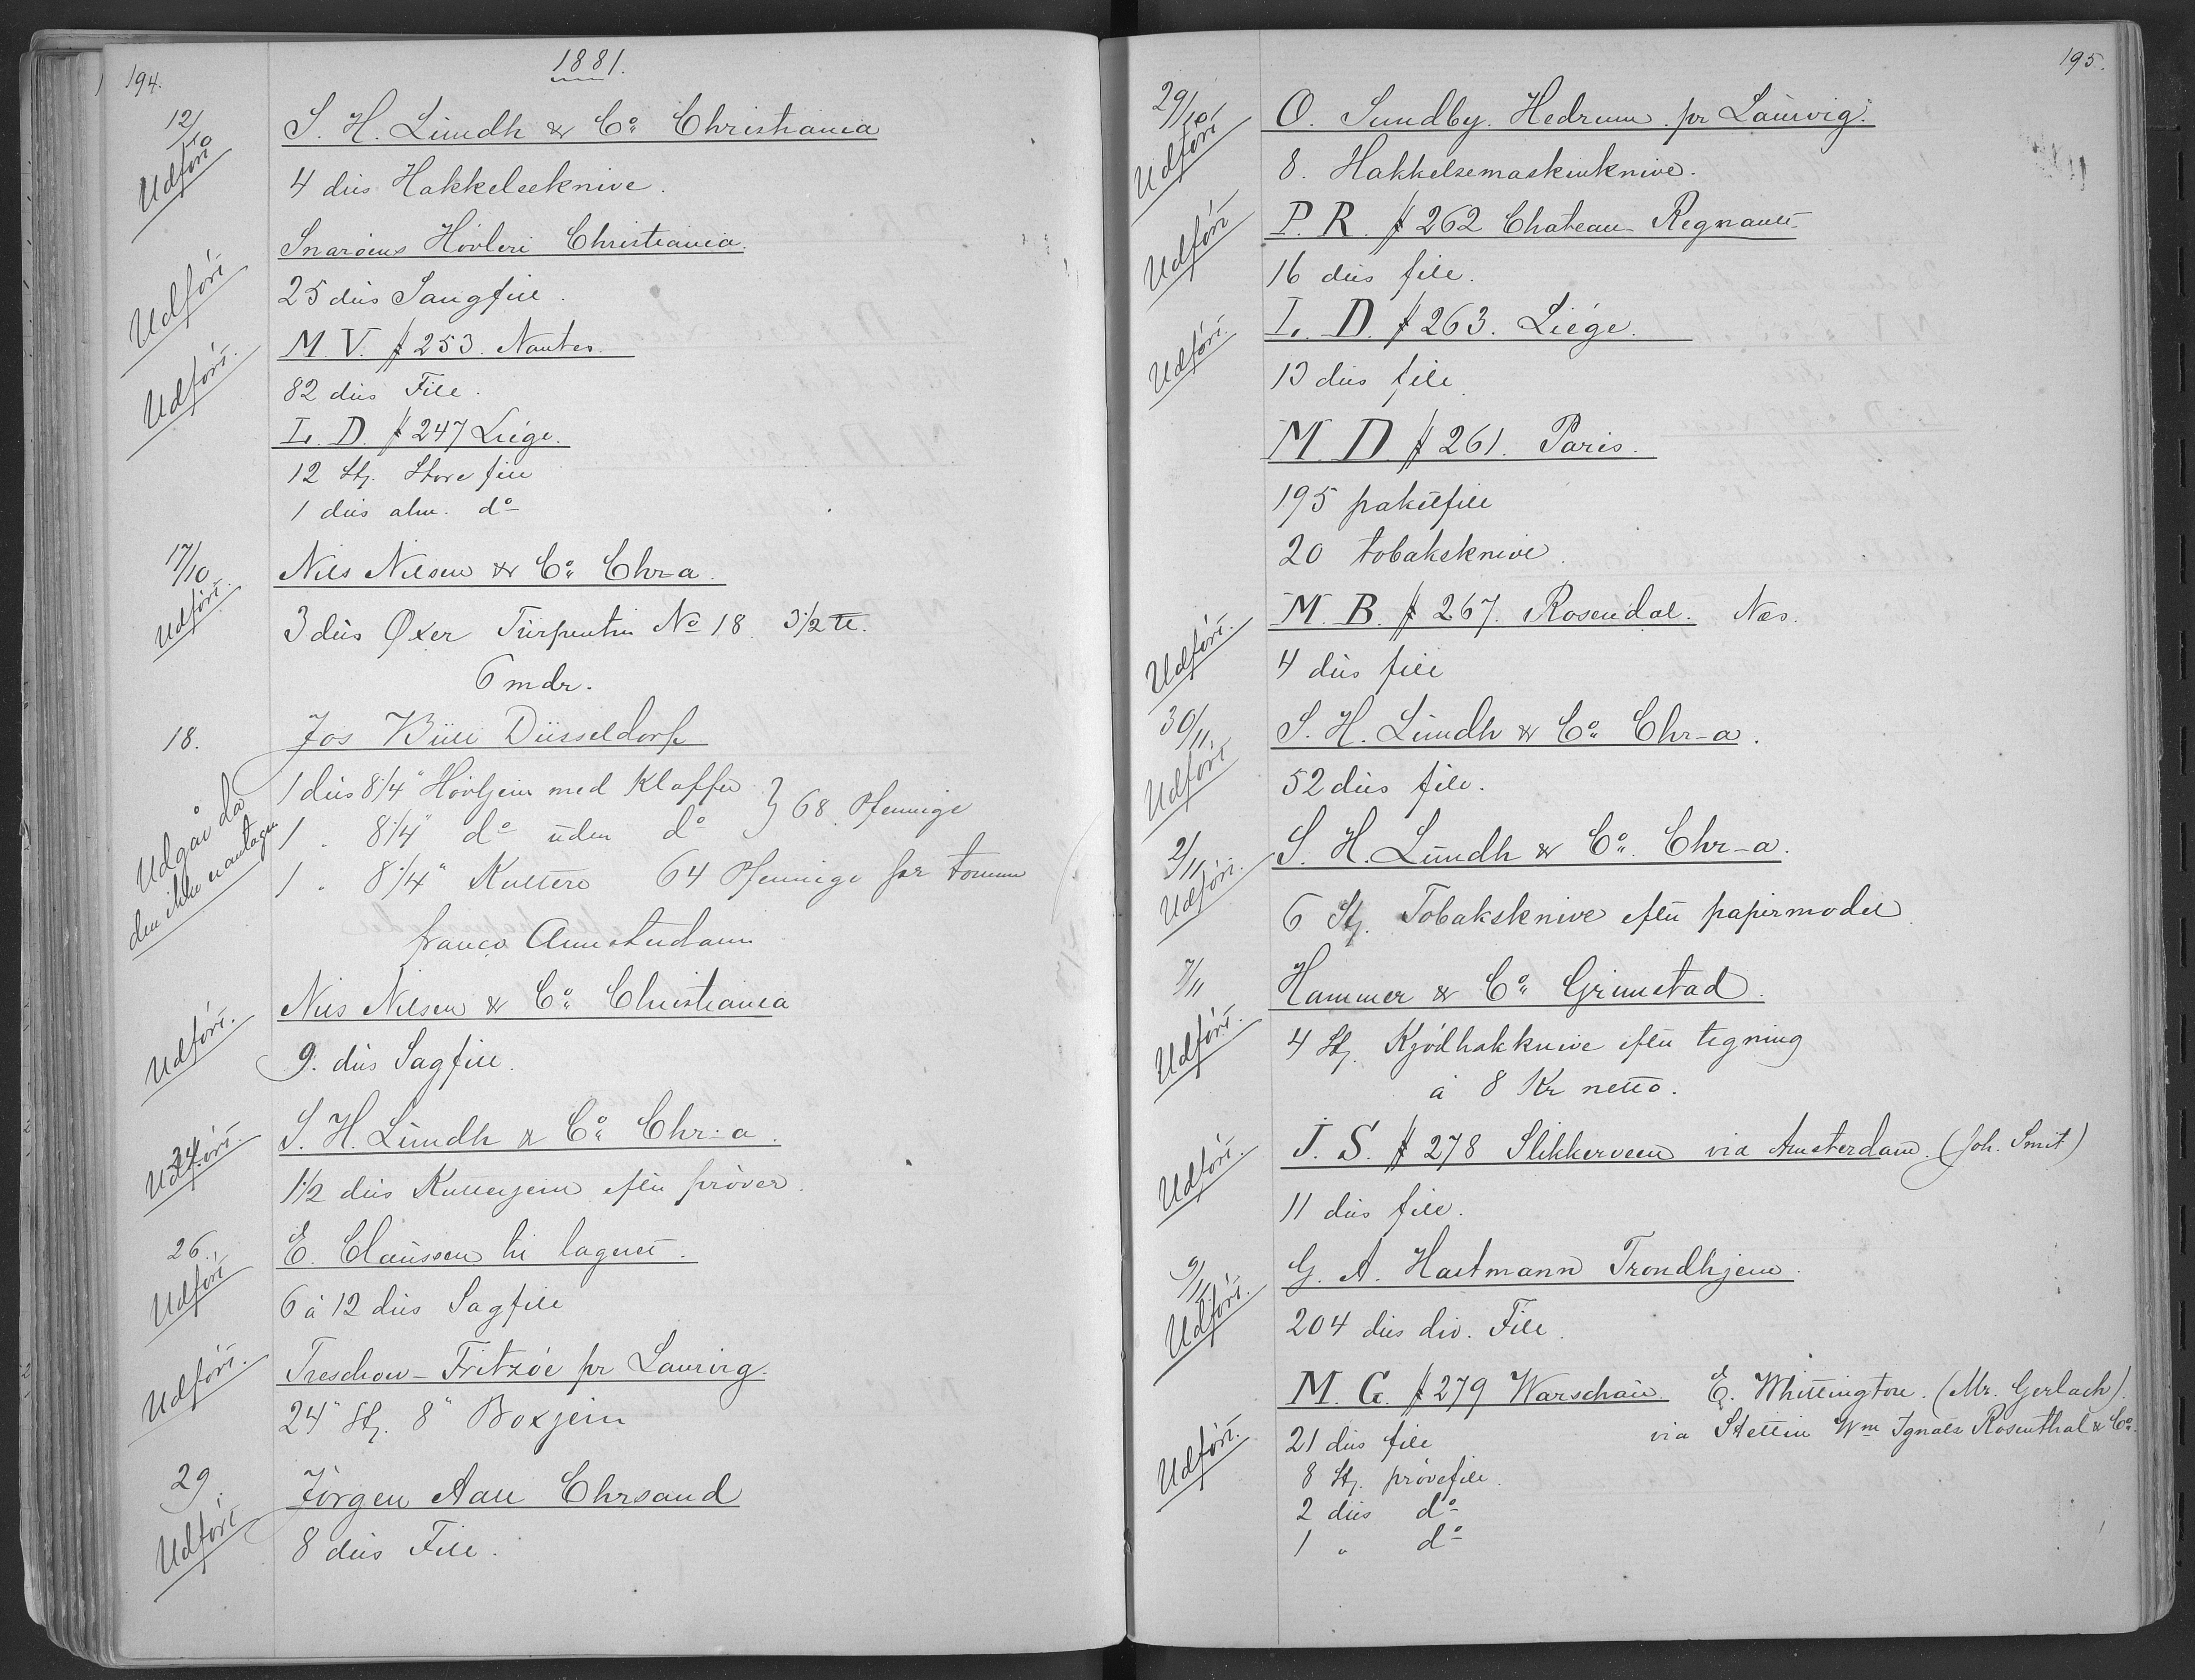 194.
1881.
12/10
S. H. Lundh & Co: Christiania
Udført
4 dus Hakkelseknive.
Snaröens Hövleri Christiania.
Udført
25 dus Saugfile.
M. V. # 253. Nantes.
Udført.
82 dus File.
L. D. # 247 Liége.
12 Stz. Store file
1 dus alm. do
17/10
Nils Nilsen & Co: Chr-a.
Udført.
3 dus Øxer Turpentin No 18 3½ ℔.
6 mdr.
18.
Jos Büll Düsseldorf
Udgår da
den ikke er antagen
1 dus 8¼" Hövljern med Klaffer } 68 Pfennige
1 " 8¼" do uden do
1 " 8¼" Kuttere 64 Pfennige per tomme
franco Amsterdam
Nils Nilsen & Co: Christiania
Udført.
9. dus Sagfile.
S. H. Lundh & Co: Chr-a.
24.
Udført.
1½ dus Kutterjern efter pröver.
26.
E. Claussen til lageret.
Udført
6 à 12 dus Sagfile
Treschow-Fritzöe pr Laurvig.
Udført.
24" Stz. 8" Boxjern
29.
Jörgen Aall Chrsand
Udført
8 dus File.
195.
29/10
O. Sundby. Hedrum. pr Laurvig.
Udført
8. Hakkelsemaskinknive.
P. R. # 262 Chateau-Regnault
Udført
16 dus file.
L. D. # 263. Liége.
Udført.
13 dus file
M. D. # 261. Paris.
195 paketfile
20 tobaksknive.
M. B. # 267. Rosendal. Nes.
Udført.
4 dus file
30/11.
S. H. Lundh & Co: Chr-a.
Udført
52 dus file.
2/11
S. H. Lundh & Co: Chr-a.
Udført.
6 Stz. Tobaksknive efter papirmodel
7/11
Hammer & Co: Grimstad.
Udført.
4 Stz. Kjödhakknive efter tegning
à 8 Kr netto.
J. S. # 278 Slikkerveen via Amsterdam. (Joh. Smit)
Udført.
11 dus file.
9/11.
G. A. Hartmann Trondhjem.
Udført.
204 dus div. File.
M. G. # 279 Warschau. E. Whittington. (Mr. Gerlach).
via Stettin Wm Ignatz Rosenthal & Co.
Udført.
21 dus file
8 Stz. prövefile.
2 dus do
1 " do